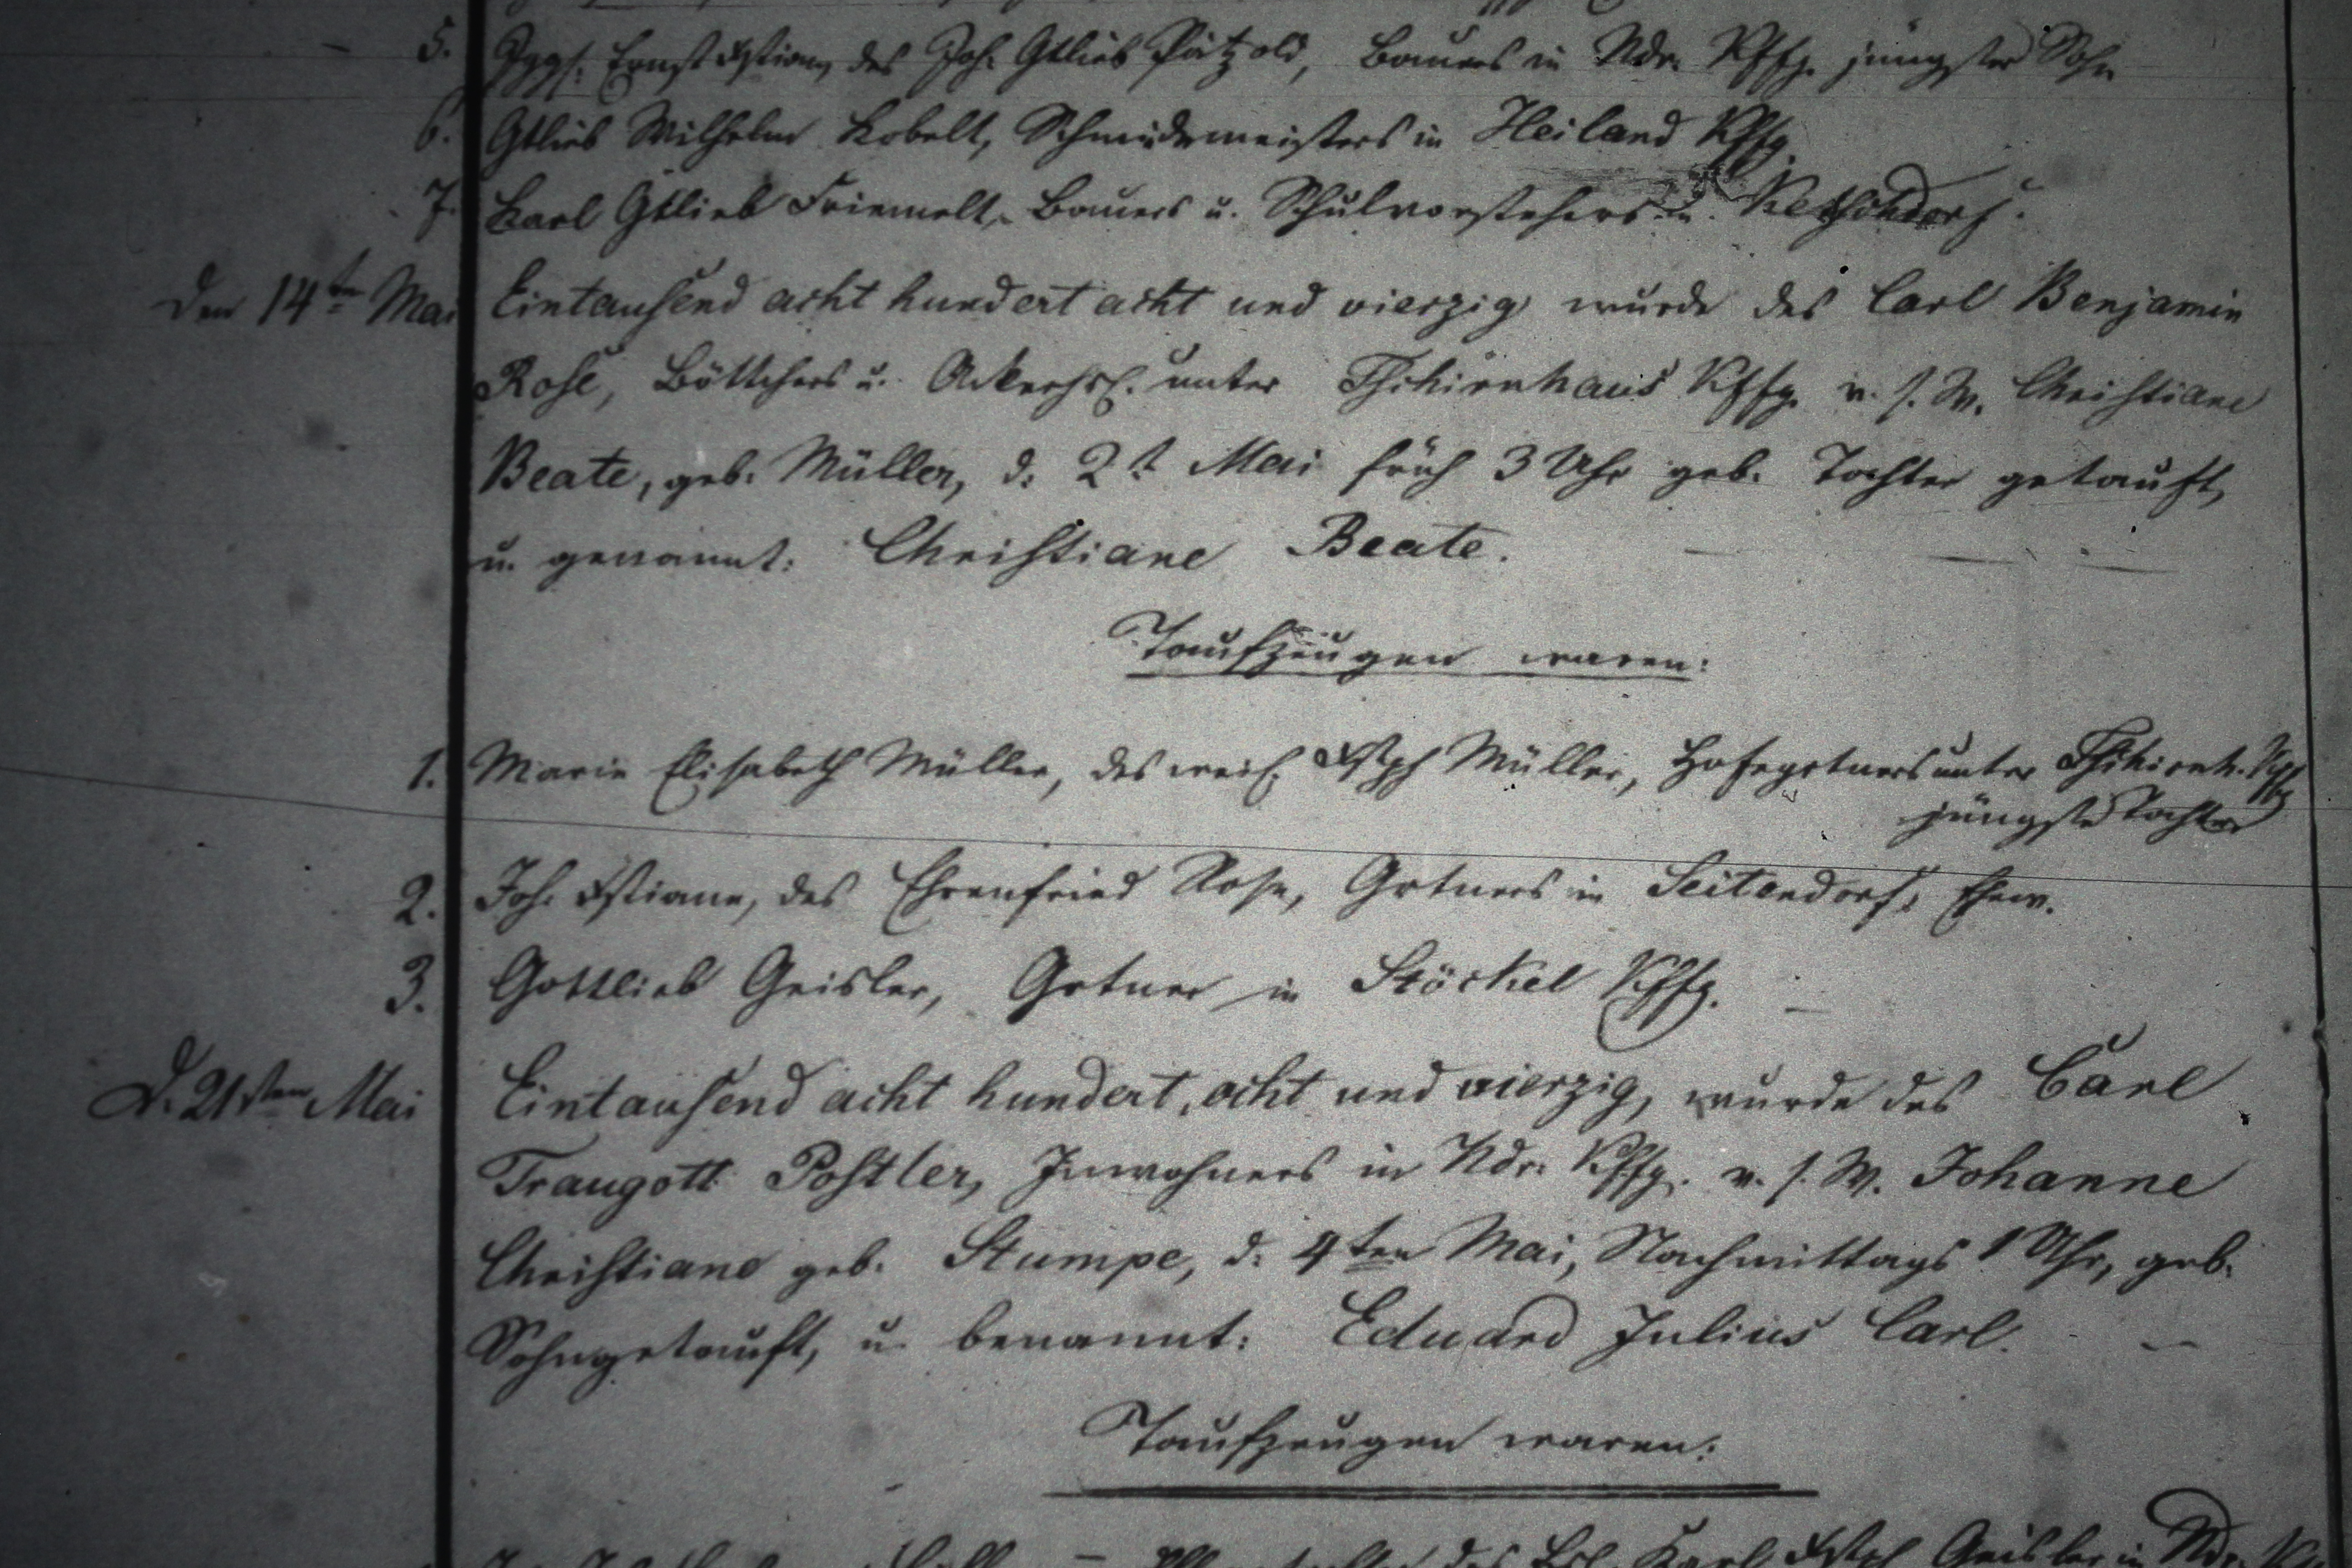 5. Jggs. Ernst Xstian, des Joh. Gtlieb Pätzold, Bauers in Ndr. Kffg. jüngster Sohn
6. Gtlieb Wilhelm Kobelt, Schmiedemeisters in Heiland Kffg.
7. Karl Gtlieb Friemelt, Bauers u. Schulvorstehers in Ketschdorf.
Den 14ten Mai Eintausend acht hundert acht und vierzig wurde des Carl Benjamin
Rose, Böttchers u. unter Tschirnhaus Kffg. v. s. W. Christiane
Beate, geb. Müller, d. 2t Mai früh 3 Uhr geb. Tochter getauft,
u. genannt: Christiane Beate.
Taufzeugen waren:
1. Marie Elisabeth Müller, des weil. Xstph Müller, Hofegrtners unter Tschirnh. Kffg
jüngste Tochter
2. Joh. Xstiane, des Ehrenfried Rose, Grtners in Seitendorf, Ehew.
3. Gottlieb Geisler, Grtner in Stöckel Kffg. –
D. 21sten Mai Eintausend acht hundert, acht und vierzig, wurde des Carl
Traugott Postler, Inwohners in Ndr. Kffg. v. s. W. Johanne
Christiane geb. Stumpe, d. 4ten Mai, Nachmittags 1 Uhr, geb.
Sohn getauft, u. benannt: Eduard Julius Carl. –
Taufzeugen waren:
des Karl Xstph Geisler in Ndr.